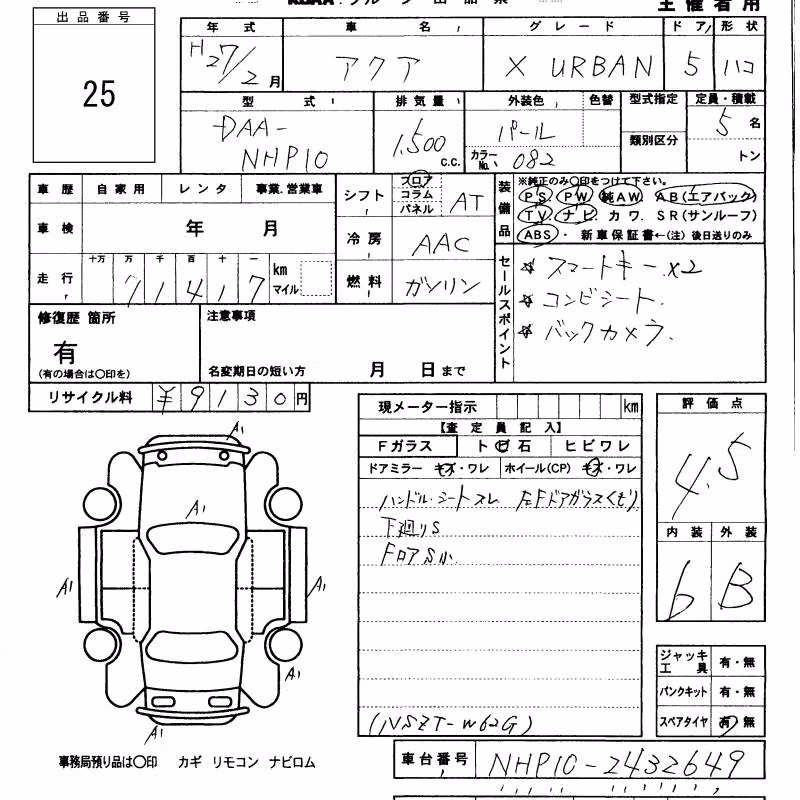 出品番号
25
年式 車名 グレード ドア 形状
H27/2月 アクア X URBAN 5 ハコ
型式 排気量 外装色 色替 型式指定 定員・積載
DAA-NHP10 1,500 c.c. パール 5名
カラーNo. 082 類別区分 トン
車歴 自家用 レンタ 事業.営業車
シフト フロア コラム パネル AT
装備品 ※純正のみ〇印をつけて下さい。
PS. PW. 純AW. AB(エアバック)
TV. ナビ. カワ. SR(サンルーフ)
ABS. ・ 新車保証書←(注) 後日送りのみ
車検 年 月
冷房 AAC
走行 十万 万 千 百 十 一
71417 km マイル
燃料 ガソリン
セールスポイント
☆ スマートキー x2
☆ コンビシート.
☆ バックカメラ.
修復歴 箇所 注意事項
有
(有の場合は〇印を) 名変期日の短い方 月 日まで
リサイクル料 ¥9130円
現メーター指示 km
【査定員記入】
Fガラス トビ石 ヒビワレ
ドアミラー キズ・ワレ ホイール(CP) キズ・ワレ
ハンドル・シートスレ 左Fドアガラスくもり
下廻りS
FロアS小
(NSZT-W62G)
評価点
4.5
内装 外装
6 B
ジャッキ工具 有・無
パンクキット 有・無
スペアタイヤ 有・無
A1
A1
A1
A1
A1
A1
事務局預り品は〇印 カギ リモコン ナビロム
車台番号 NHP10-2432649